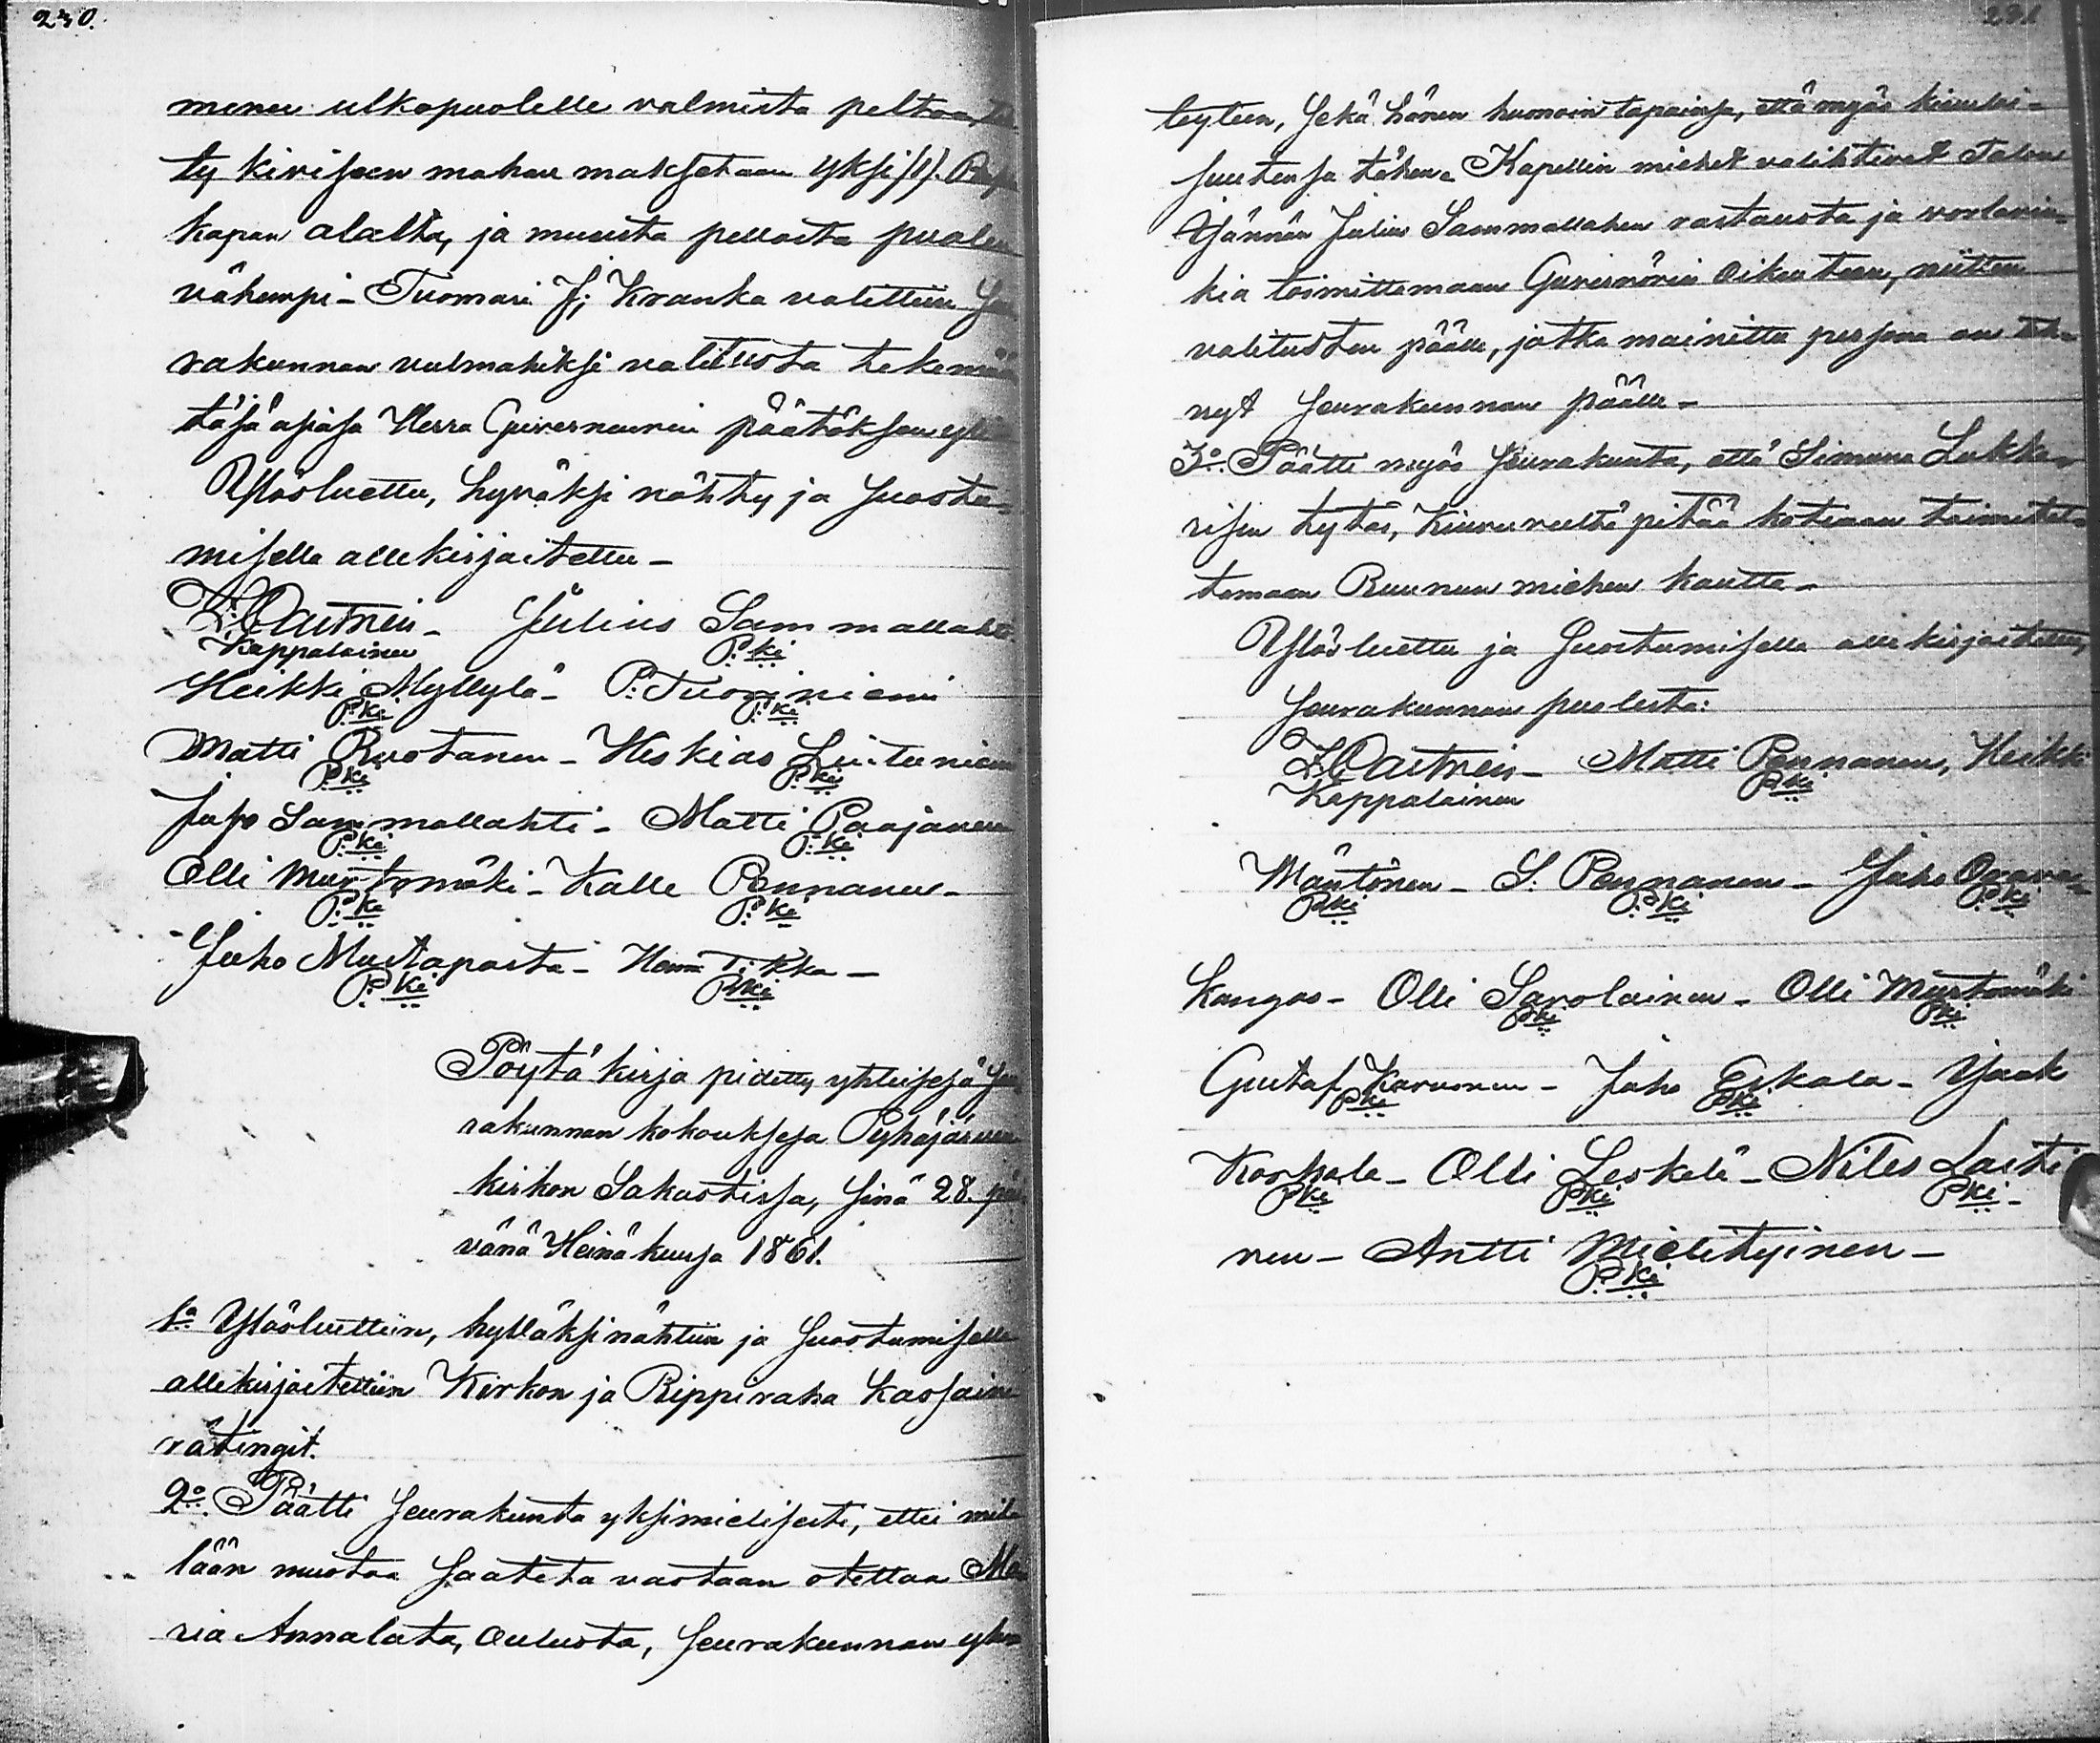 230.
menee ulkopuolelle valmista peltoa,
ty kiviseen mahan maksetaan yksi (1). Rup
kapan alalta, ja muusta pellosta puolen
vähempi – Tuomari J; Kranka valittiin Seu
rakunnan vulmahiksi valitusta tekemään
täsä asiasa Herra Guverneurin päätöksen yli
Ylösluettu, hyväksi nähty ja suostu-
misella allekirjoitettu –
Julius Sammallahti
Kappalainen P:ki
Heikki Myllylä – P. Tuoriniemi
P:ki P:ki
Matti Ruotanen – Heskias Liuteniemi
P:ki P:ki
Juho Sammallahti – Matti Paajanen
P:ki P:ki
Olli Murtomäki – Kalle Pennanen –
P:ki P:ki
Juho Mustapasta – Henr Tikka –
P:ki P:ki
Pöytä kirja pidetty yhteisesä Seu
rakunnan kokouksesa Pyhäjärven
kirkon Sakastissa, sinä 28. päi
vänä Heinäkuusa 1861.
1o Ylösluettiin, hylläksi nähtiin ja suostumisella
allekirjoitettiin Kirkon ja Rippiraha kassain
rätingit.
2o. Päätti seurakunta yksimielisesti, ettei mil
lään muotoa saateta vastaan otettaa Ma
ria Annalata, Oulusta, seurakunnan yhte
231
teyteen, sekä hänen huonoin tapainsa, että myös kiuului-
suutensa tähen. Kapellin miehet valihtivat Talon
Isännän Julius Sammallahen vastausta ja
kia toimittamaan Guvernörin Oikeuteen, niitten
valitusten päälle, jotka mainittu persona on teh-
nyt seurakunnan päälle –
3o. Päätti myös seurakunta, että Simuna Lukka-
risen tytär, Kiuruveeltä pitää kotiaan toimitet-
tamaan Ruunun miehen kautta –
Ylös luettu ja suostumisella allekirjoitettu,
Seurakunnan puolesta:
Matti Pennanen, Heikki
Kappalainen P:ki
Mäntönen – S. Pennanen – Juho Orava-
P:ki P:ki P:ki
kangas – Olli Savolainen – Olli Murtomäki
P:ki P:ki
Gustaf Karvonen – Juho Eskola – Isaak
P:ki P:ki
Korkala – Olli Leskelä – Niles Laiti
P:ki P:ki P:ki –
nen – Antti Mielityinen –
P:ki